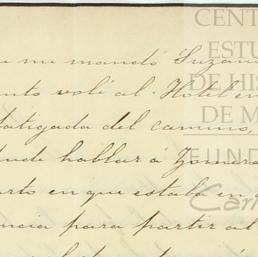 me mandó Suzan
volé al Hotel en
fatigada del camino,
pude hablar á Zomora
en que estaba en
para partir al
CENT
ESTU
DE HIS
DE M
FUND
Car